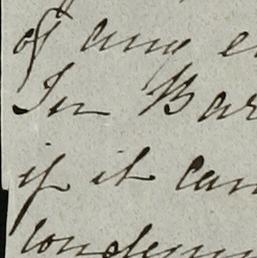 of any e
In Bar
if it can
condemn